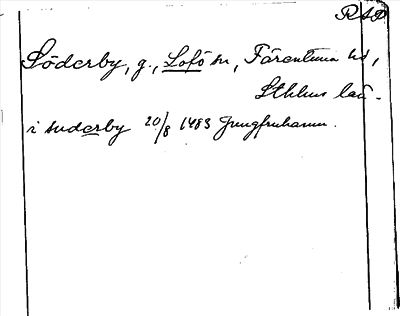 RAÄ
Söderby, g., Lofö sn, Färentuna hd,
Sthlms län.
i suderby 20/8 1483 Jungfruhamn.